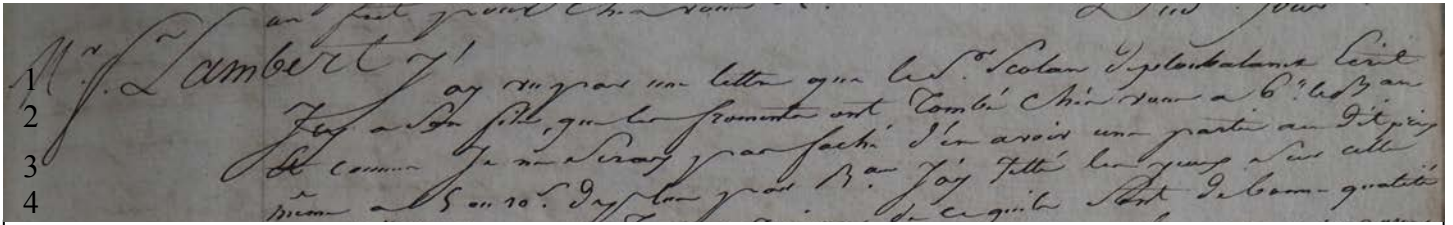 1 Mr. Lambert J'ay vu par une lettre que le Sr. Scolan de ploubalanec Ecrit
2 Icy a Son fils, que les froments ont Tombé Chés vous a 6tt le Bau
3 Et comme Je ne Seray pas faché d'en avoir une partie au dit prix
4 même a 5 ou 10 s. de plus par Bau J'ay Jetté les yeux Sur cette
de ce qu'ils Sont de bonne qualité